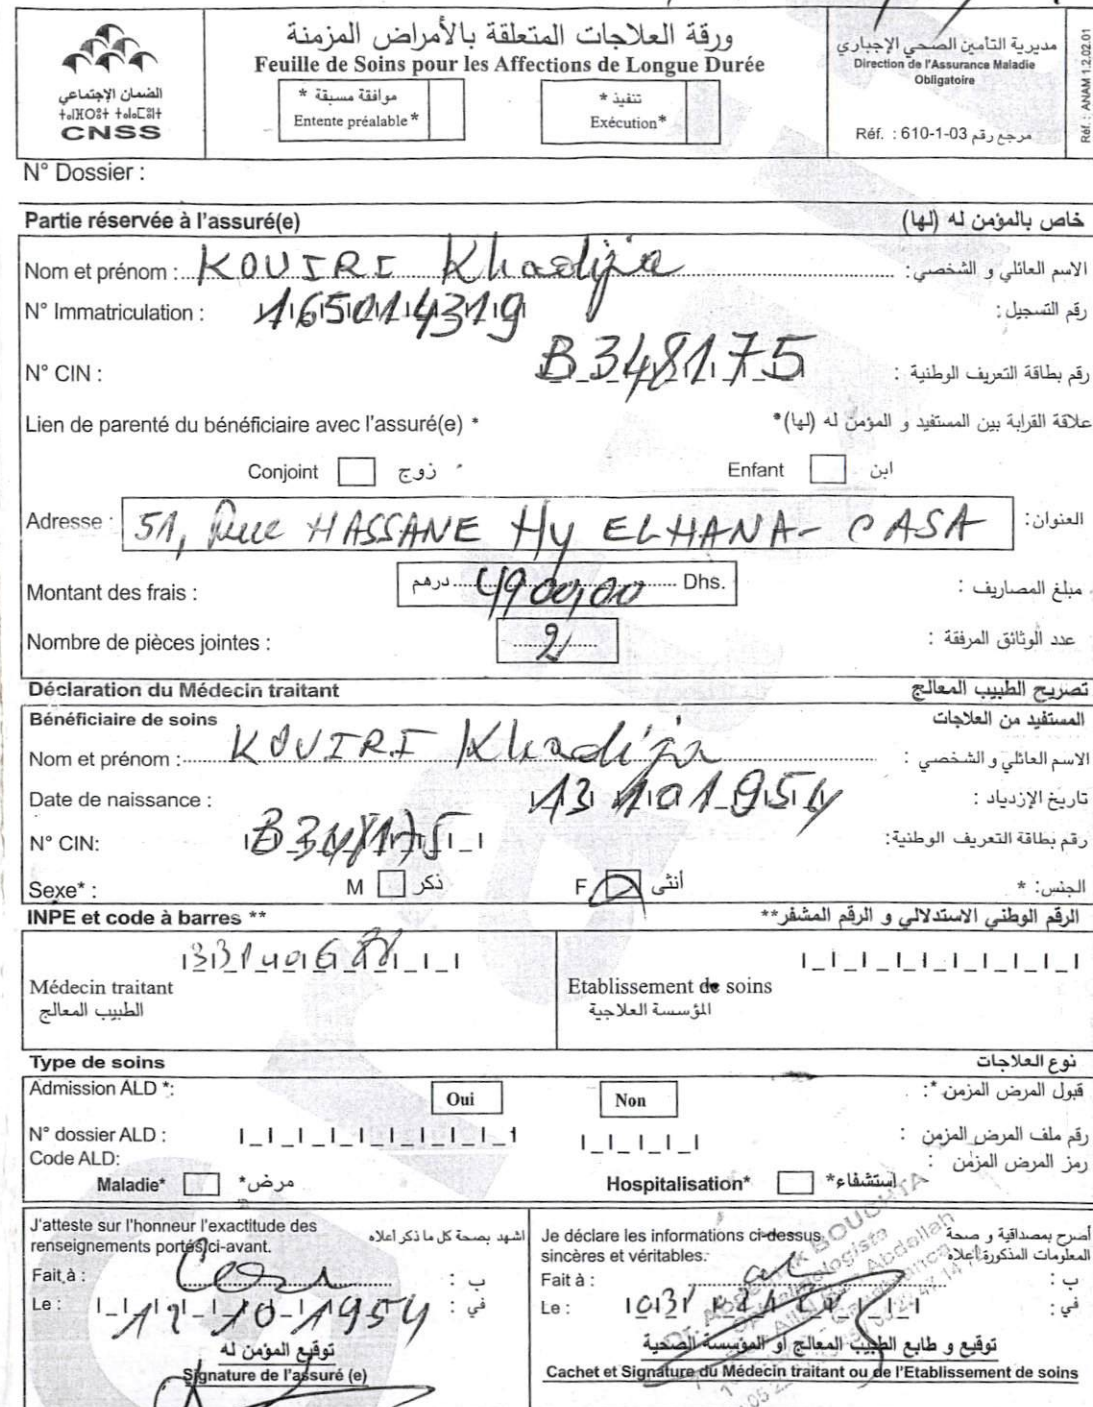 ورقة العلاجات المتعلقة بالأمراض المزمنة
Feuille de Soins pour les Affections de Longue Durée
مديرية التأمين الصحي الإجباري
Direction de l'Assurance Maladie
Obligatoire
Réf. : ANAM 1.2.02.01
الضمان الإجتماعي
CNSS
موافقة مسبقة *
Entente préalable *
تنفيذ *
Exécution*
Réf. : 610-1-03 مرجع رقم
N° Dossier :
Partie réservée à l'assuré(e) خاص بالمؤمن له (لها)
Nom et prénom : KOUIRI Khadija الاسم العائلي و الشخصي :
N° Immatriculation : 165014319 رقم التسجيل :
N° CIN : B348175 رقم بطاقة التعريف الوطنية :
Lien de parenté du bénéficiaire avec l'assuré(e) * علاقة القرابة بين المستفيد و المؤمن له (لها)*
Conjoint زوج Enfant ابن
Adresse : 51, Rue HASSANE Hy ELHANA- CASA العنوان:
Montant des frais : درهم 4900,00 Dhs. مبلغ المصاريف :
Nombre de pièces jointes : 2 عدد الوثائق المرفقة :
Déclaration du Médecin traitant تصريح الطبيب المعالج
Bénéficiaire de soins المستفيد من العلاجات
Nom et prénom : KOUIRI Khadija الاسم العائلي و الشخصي :
Date de naissance : 13 101954 تاريخ الإزدياد :
N° CIN: B348175 رقم بطاقة التعريف الوطنية:
Sexe* : M ذكر F أنثى الجنس: *
INPE et code à barres ** الرقم الوطني الاستدلالي و الرقم المشفر**
Médecin traitant
الطبيب المعالج
Etablissement de soins
المؤسسة العلاجية
Type de soins نوع العلاجات
Admission ALD *: Oui Non قبول المرض المزمن *:
N° dossier ALD : رقم ملف المرض المزمن :
Code ALD: رمز المرض المزمن :
Maladie* مرض* Hospitalisation* إستشفاء*
J'atteste sur l'honneur l'exactitude des
renseignements portés ci-avant.
اشهد بصحة كل ما ذكر أعلاه
Fait à : Casa ب :
Le : 12-10-1954 في :
توقيع المؤمن له
Signature de l'assuré (e)
Je déclare les informations ci-dessus
sincères et véritables.
أصرح بمصداقية و صحة
المعلومات المذكورة أعلاه
Fait à : ب :
Le : في :
توقيع و طابع الطبيب المعالج أو المؤسسة الصحية
Cachet et Signature du Médecin traitant ou de l'Etablissement de soins